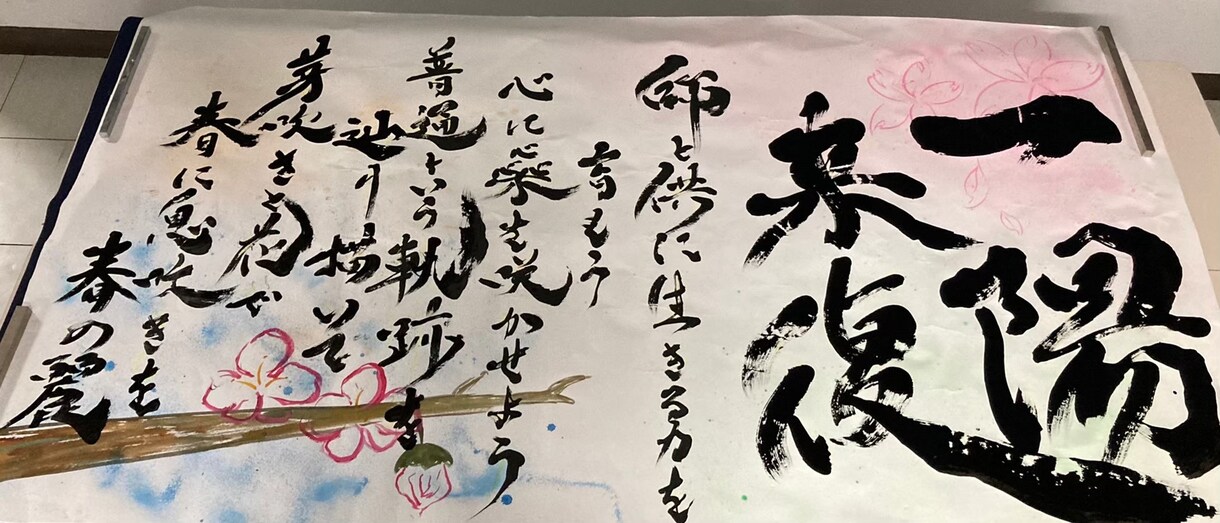 一陽
来復
師と供に生きる力を
育もう
心に蘂を咲かせよう
普遍という軌跡を
辿り描いて
芽吹き
春に息吹きを
春の麗